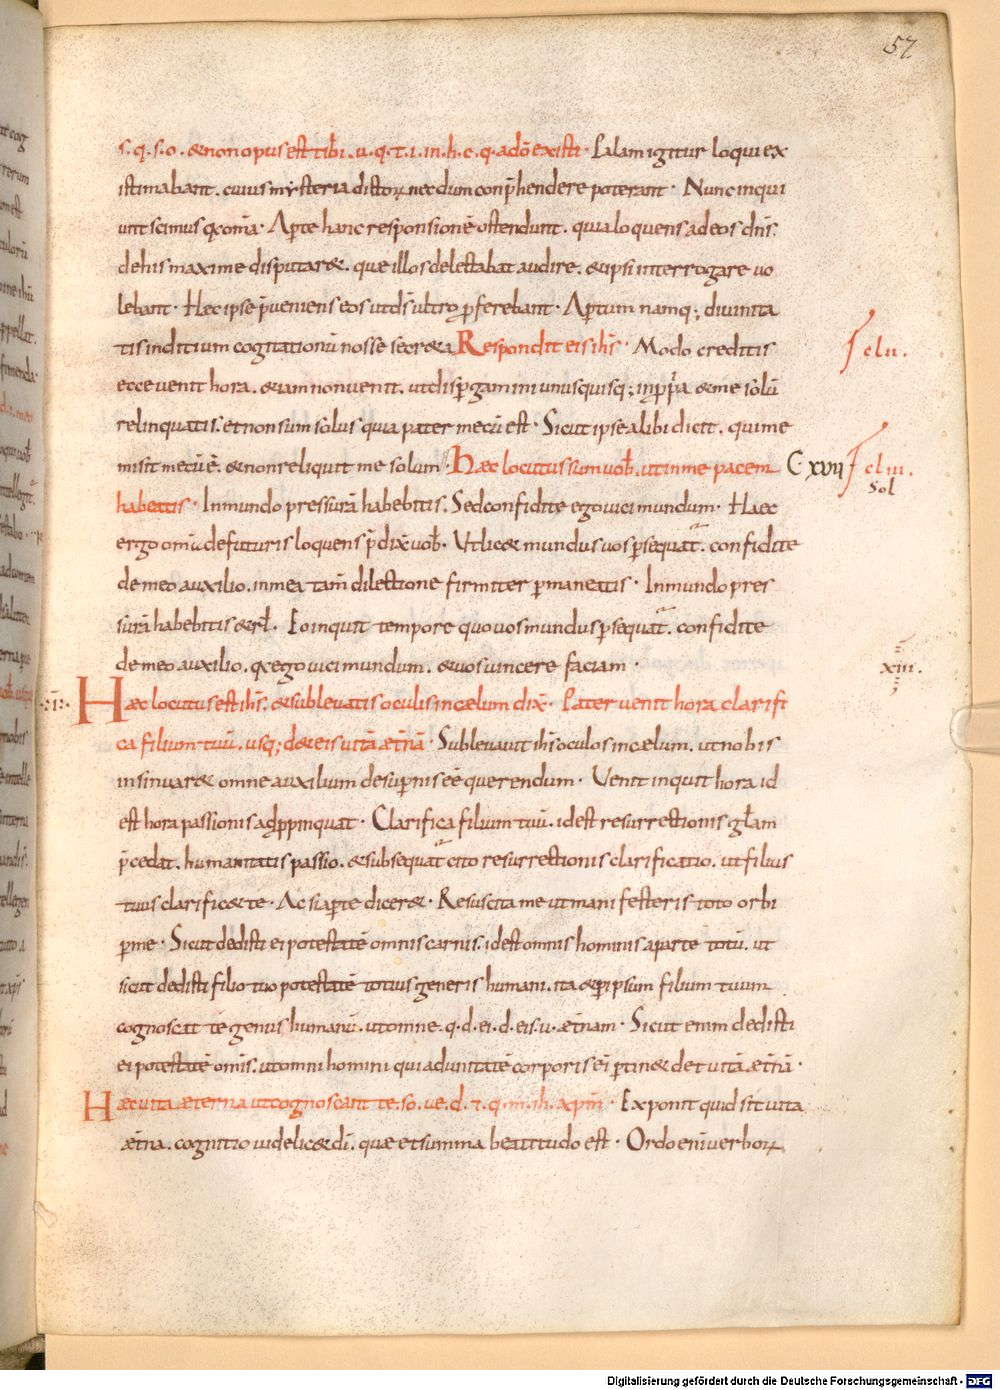 57
s. q. s. o. & non opus est tibi. u. q. t. i. in. h. c. q. a dō existi · Palam igitur loqui ex
istimabant. cuius mysteria dictoꝝ necdum conp̄hendere poterant · Nunc inqui
unt scimus q̄ omīa · Aꝑte hanc responsionē ostendunt. quia loquens ad eos dn̄s.
de his maxime disputar&. quæ illos delectabat audire. & ipsi interrogare uo
lebant · Hec ipse p̄ueniens eos ut dꝰ ultro ꝓferebant · Aꝑtum namq; diuinita
tis inditium cogitationū nosse secr&a Respondit eis ihs̄ · Modo creditis
ecce uenit hora. & iam non uenit. ut disꝑgamini unusquisq; in ꝓpria & me solū
relinquatis. et non sum solus quia pater mecū est · Sicut ipse alibi dicit. qui me
misit mecū ē. & non reliquit me solum · Hæc locutus sum uob̄. ut in me pacem
habeatis · In mundo pressurā habebitis. Sed confidite ego uici mundum · Haec
ergo omīa de futuris loquens p̄dixi uob̄ · Ut lic& mundus uos ꝑsequat̄. confidite
de meo auxilio. in mea tam̄ dilectione firmiter ꝑmaneatis · In mundo pres
surā habebitis & rl̄. Eo inquit tempore quo uos mundus ꝑsequat̄. confidite
de meo auxilio. q̄ ego uici mundum. & uos uincere faciam ·
Hæc locutus est ihs̄. & subleuatis oculis in cælum dix̄ · Pater uenit hora clarifi
ca filium tuū. usq; d& eis uitā æt̄nā · Subleuauit ihs̄ oculos in cælum. ut nobis
insinuar& omne auxilium desuꝑnis eē querendum · Venit inquit hora id
est hora passionis adꝓpinquat · Clarifica filium tuū. id est resurrectionis gl̄am
p̄cedat. humanitatis passio. & subsequat̄ cito resurrectionis clarificatio. ut filius
tuus clarific& te · Ac si aꝑte dicer& · Resuscita me ut manifesteris toto orbi
ꝑ me · Sicut dedisti ei potestatē omnis carnis. id est omnis hominis a parte totū. ut
sicut dedisti filio tuo potestatē totius generis humani. ita & ꝑ ipsum filium tuum
cognoscat te genus humanū. ut omne. q. d. ei. d. eis. u. æt̄nam · Sicut enim dedisti
ei potestatē omīs. ut omni homini qui ad unitatē corporis ei ꝑtin& det uitā æt̄nā ·
Hæc uita æterna ut cognoscant te. so. ue. d. 7. q. m. ih̄. xp̄m · Exponit quid sit uita
æt̄na. cognitio uidelic& dī. quæ et summa beatitudo est · Ordo enī uerboꝝ
clii.
C xvii
cliii.
Sol
xiii.
Digitalisierung gefördert durch die Deutsche Forschungsgemeinschaft - DFG